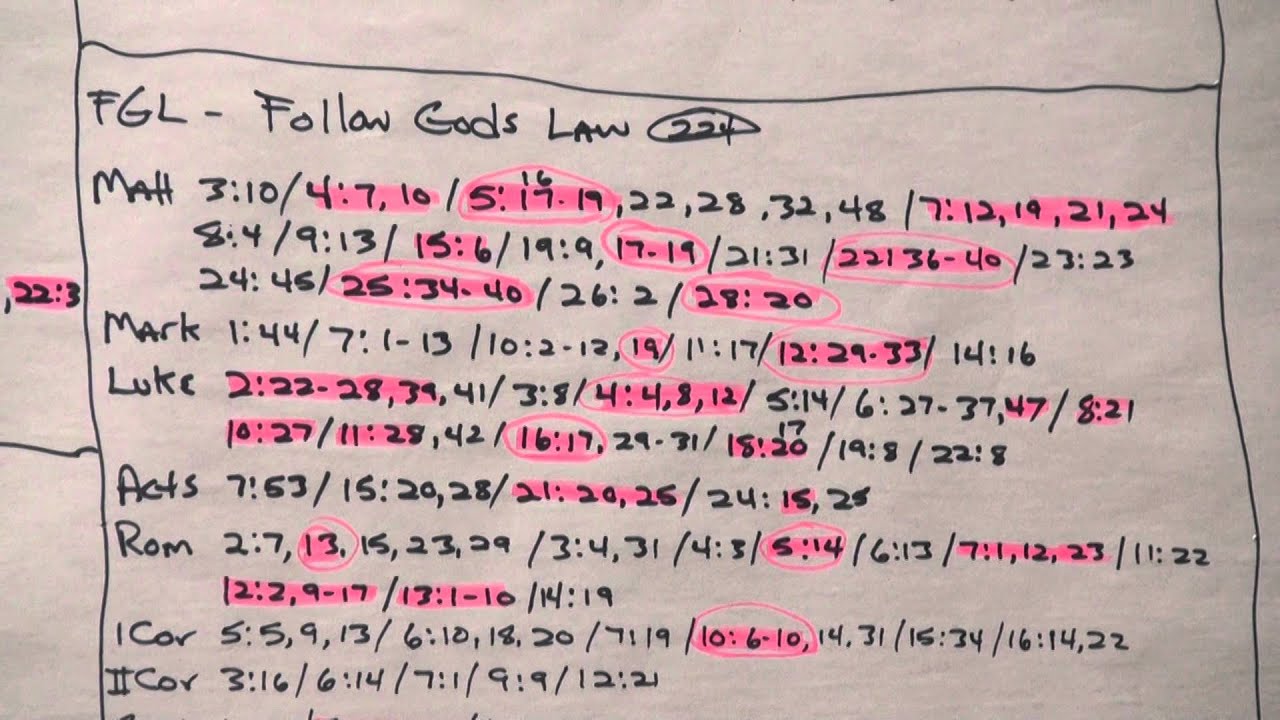 FGL - Follow Gods Law 224
Matt 3:10/4:7,10/5:16 17-19,22,28,32,48/7:12,19,21,24
8:4/9:13/15:6/19:9,17-19/21:31/22:36-40/23:23
,22:3
24:45/25:34-40/26:2/28:20
Mark 1:44/7:1-13/10:2-12,19/11:17/12:29-33/14:16
Luke 2:22-28,39,41/3:8/4:4,8,12/5:14/6:27-37,47/8:21
10:27/11:28,42/16:17,29-31/18:17 20/19:8/22:8
Acts 7:53/15:20,28/21:20,25/24:15,25
Rom 2:7,13,15,23,29/3:4,31/4:3/5:14/6:13/7:1,12,23/11:22
12:2,9-17/13:1-10/14:19
I Cor 5:5,9,13/6:10,18,20/7:19/10:6-10,14,31/15:34/16:14,22
II Cor 3:16/6:14/7:1/9:9/12:21